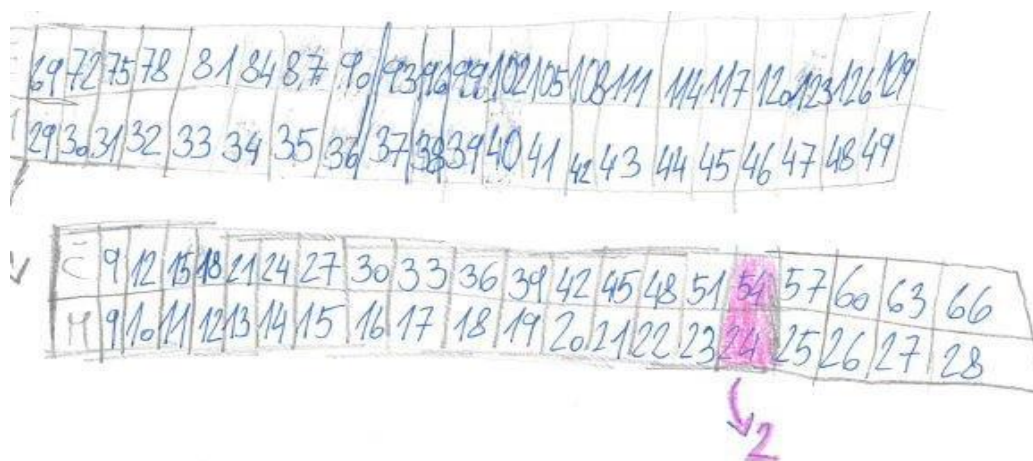 69 72 75 78 81 84 87 90 93 96 99 102 105 108 111 114 117 120 123 126 129
29 30 31 32 33 34 35 36 37 38 39 40 41 42 43 44 45 46 47 48 49
Č 9 12 15 18 21 24 27 30 33 36 39 42 45 48 51 54 57 60 63 66
M 9 10 11 12 13 14 15 16 17 18 19 20 21 22 23 24 25 26 27 28
2